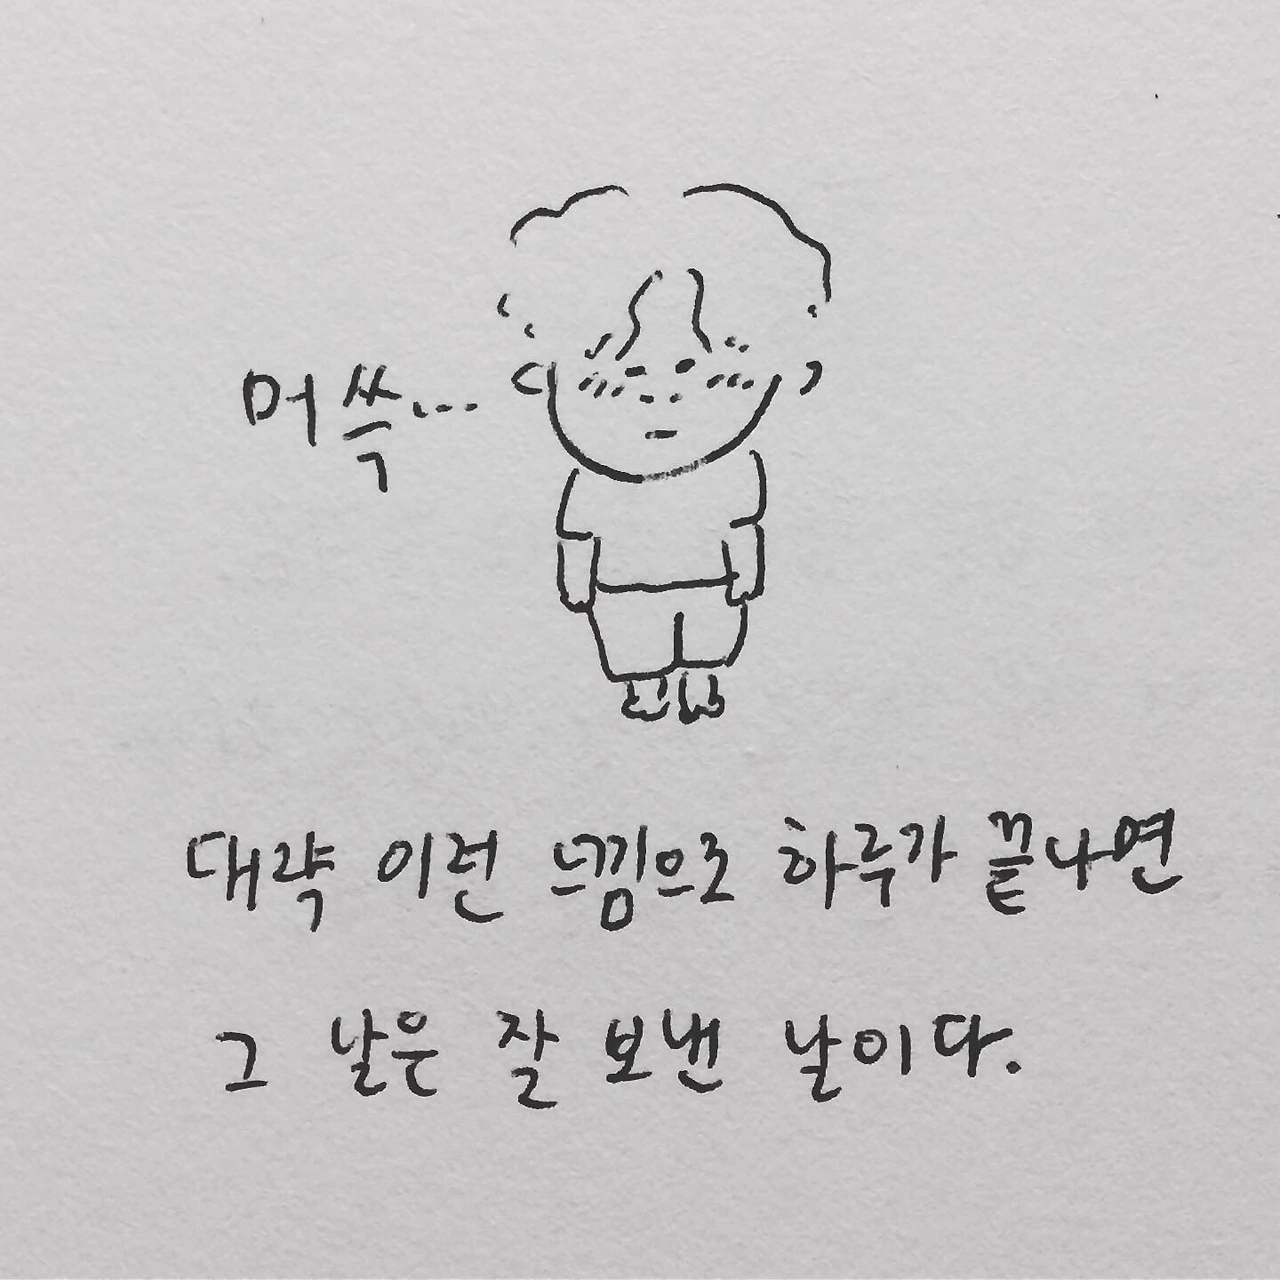 머쓱...
대략 이런 느낌으로 하루가 끝나면
그 날은 잘 보낸 날이다.